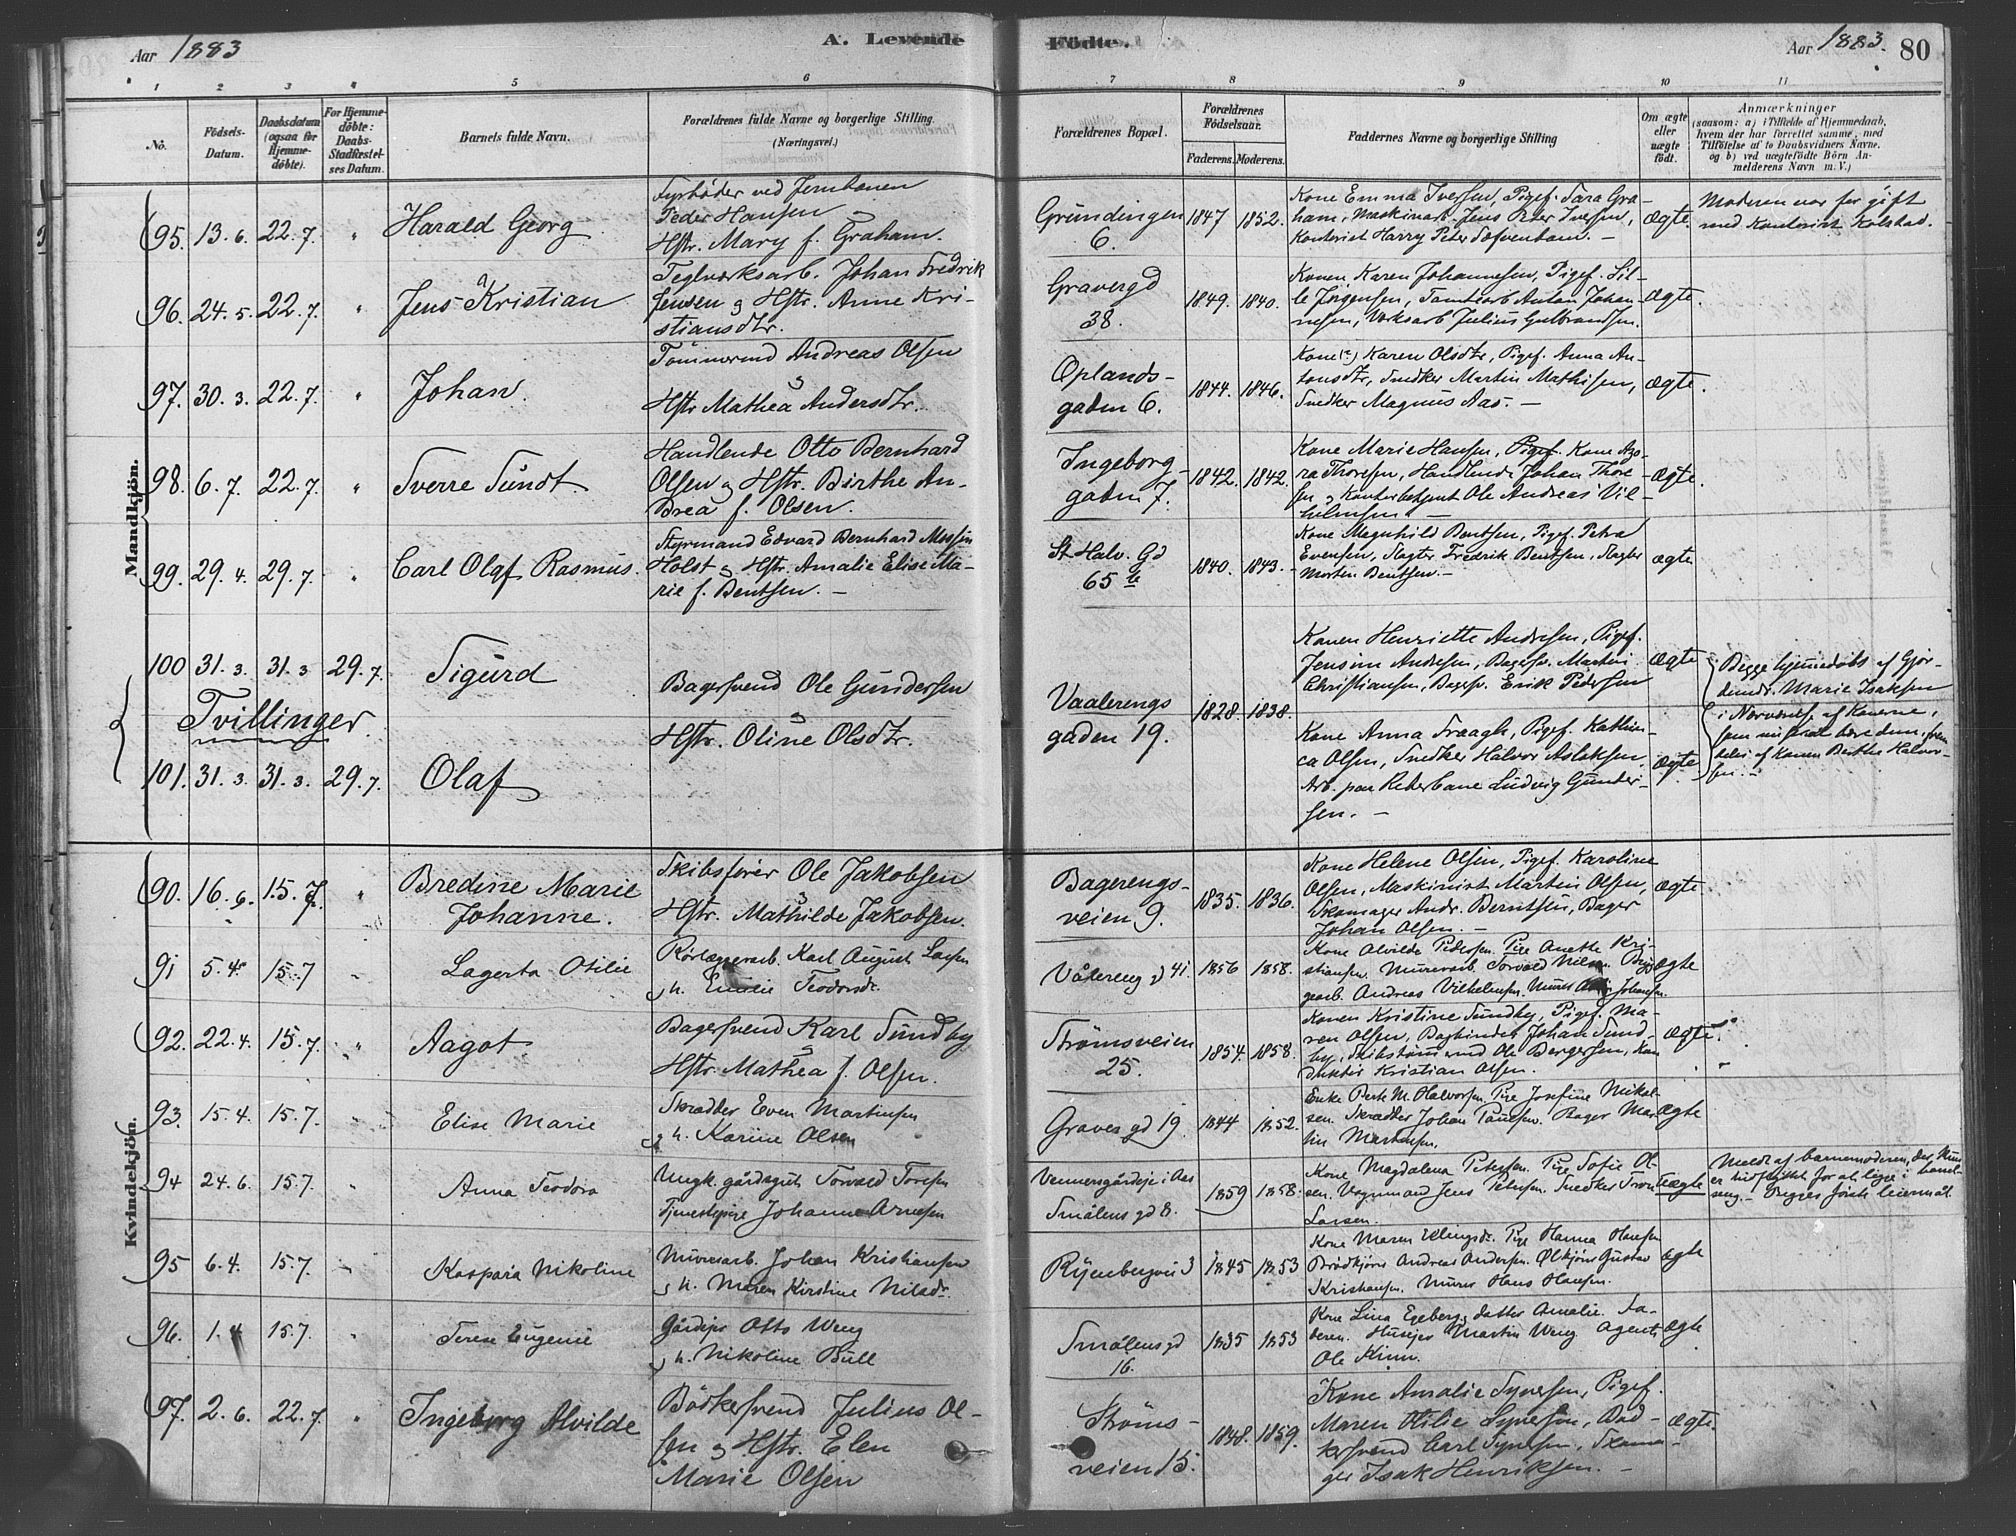 Aar 1883
A. Levende
Födte.
Aar 1883.
80
1 2 3 4 5 6 7 8 9 10 11
No.
Födsels-
Datum.
Daabsdatum
(ogsaa for
Hjemme-
döbte).
For Hjemme-
döbte:
Daabs-
Stadfæstel-
ses Datum.
Barnets fulde Navn.
Forældrenes fulde Navne og borgerlige Stilling.
(Næringsvei.)
Forældrenes Bopæl.
Forældrenes
Födselsaar.
Faderens. Moderens.
Faddernes Navne og borgerlige Stilling
Om ægte
eller
uægte
födt.
Anmærkninger
(saasom: a) i Tilfælde af Hjemmedaab,
hvem der har forrettet samme, med
Tilföielse af to Daabsvidners Navne.
og b) ved uægtefödte Börn An-
melderens Navn m. V.)
Mandkjön.
95. 13.6. 22.7. " Harald Georg
Fyrböder ved Jernbanen
Peder Hansen
Hstr. Mary f. Graham.
Gründingen
6.
1847 1852.
Kone Emma Iversen, Pigef. Sara Gra-
ham, Maskinarb. Jens Peter Iversen,
Kontorist Harry Peter
ægte.
Moderen var før gift
med Kontorist Kolstad.
96. 24.5. 22.7. " Jens Kristian
Teglværksarb. Johan Fredrik
Jensen og Hstr. Anne Kri-
stiansdtr.
Gravergd
38.
1849. 1840.
Konen Karen Johannesen, Pigef. Sil-
le Jörgensen, Tomtearb Anton Johan-
nesen, Værksarb Julius Gulbrandsen.
ægte.
97. 30.3. 22.7. " Johan.
Tömmermd Andreas Olsen
og
Hstr Mathea Andersdtr.
Oplands-
gaden 6.
1844. 1846.
Kone Karen Olsdtr, Pigef. Anna An-
tonsdtr, Snedker Martin Mathisen,
Snedker Magnus Aas. –
ægte.
98. 6.7. 22.7. " Sverre Sundt
Handlende Otto Bernhard
Olsen og Hstr. Birthe An-
drea f. Olsen.
Ingeborg-
gaden 7.
1842. 1842.
Kone Marie Hansen, Pigef. Kone
Thoresen, Handlende Johan Thore-
sen, og Kontorbetjent Ole Andreas Vil-
helmsen –
ægte.
99. 29.4. 29.7. " Carl Olaf Rasmus.
Styrmand Edvard Bernhard
Holst og Hstr. Amalie Elise Ma-
rie f. Bentsen. –
St Halv. Gd
65 b
1840. 1843.
Kone Magnhild Bentsen, Pigef. Petra
Evensen, Slagter Fredrik Bentsen, Slagter
Morten Bentsen. –
ægte
100 31.3. 31.3 29.7. Sigurd
Tvillinger.
101. 31.3. 31.3. 29.7. Olaf
Bagersvend Ole Gundersen
og
Hstr. Oline Olsdtr.
Vaalerengs
gaden 19.
1828. 1838.
Konen Henriette Andresen, Pigef.
Jensine Andresen, Bagersv. Martin
Christiansen, Bagersv. Erik Pedersen
ægte
Kone Anna Kraagh, Pigef. Kathin-
ca Olsen, Snedker Halvor Aslaksen,
Arb. paa Reberbane Ludvig Gunder-
sen. –
ægte
Begge hjemmedöbt af Gjor-
demdr. Marie Isaksen
i Nærværelse af Konerne,
som
af Konen Berthe Halvor-
sen. –
Kvindekjön.
90. 16.6. 15.7. " Bredine Marie
Johanne.
Skibsförer Ole Jakobsen
og
Hstr. Mathilde Jakobsen.
Bagerengs-
veien 9.
1835. 1836.
Kone Helene Olsen, Pigef. Karoline
Olsen, Maskinist Martin Olsen,
Skomager Andr. Berntsen, Bager
Johan Olsen. –
ægte
91 5.4. 15.7 Lagerta Otilie
Rörlæggerarb. Karl August Larsen
og h. Emilie Teodorsdr.
Vålereng gd 41.
1856 1858.
Kone Alvilde Pedersen. Pige Anette Kri-
stiansen. Murerarb. Torvald Nilsen.
Andreas Vilhelmsen. Murer Johansen.
ægte
92. 22.4. 15.7. " Aagot
Bagersvend Karl Sundby
og
Hstr. Mathea f. Olsen.
Strömsveien
25.
1854. 1858.
Konen Kristine Sundby, Pigef. Ma-
ren Olsen, Bogbinder Johan Sund-
by, Skibstömmermd Ole Bergersen, Kon
duktör Kristian Olsen.
ægte.
93. 15.4. 15.7. Elise Marie
Skrædder Even Martinsen
og h. Karine Olsen
Graver gd 19.
1844 1852.
Enke Berte M. Halvorsen. Pige Josefine Nikol-
sen. Skrædder Johan Paulsen. Bager Mar-
tin Martinsen.
ægte
94 24.6. 15.7. Anna Teodora
Ungk. gårdsgut Torvald Toresen
Tjenestepige Johanne Arnesen
Smålens gd 8.
1859 1858.
Kone Magdalena Petersen. Pige Sofie Ol-
sen. Vognmand Jens Petersen. Snedker
Larsen.
uægte
Meldt af barnemoderen, der kun
er indflyttet for at ligge i barsel-
seng. – Begges förste leiermål
95 6.4. 15.7. Kaspara Nikoline
Murerarb. Johan Kristiansen
og h. Maren Kirstine Nilsdr.
Ryenbergvei 3
1845 1853
Kone Maren Ellingsdr. Pige Hanna Hansen
Brödkjörer Andreas Andersen. Ölkjörer Gustav
Kristiansen. Murer Hans Hansen.
ægte
96. 1.4 15.7. Terese Eugenie
Gårdeier Otto Weng
og h. Nikoline Bull
Smålens gd
16.
1835 1853
Kone Lina Egeberg, datter Amalie. Fa-
deren. Huseier Martin Weng. Agent
Ole Kinn.
ægte
97. 2.6. 22.7. " Ingeborg Alvilde
Bödkersvend Julius Ol-
sen og Hstr. Elen
Marie Olsen
Ströms-
veien 15.
1848. 1859.
Kone Amalie Syversen, Pigef.
Maren Otilie Syversen, Böd-
kersvend Carl Syversen, Skoma-
ger Isak Henriksen. –
ægte.